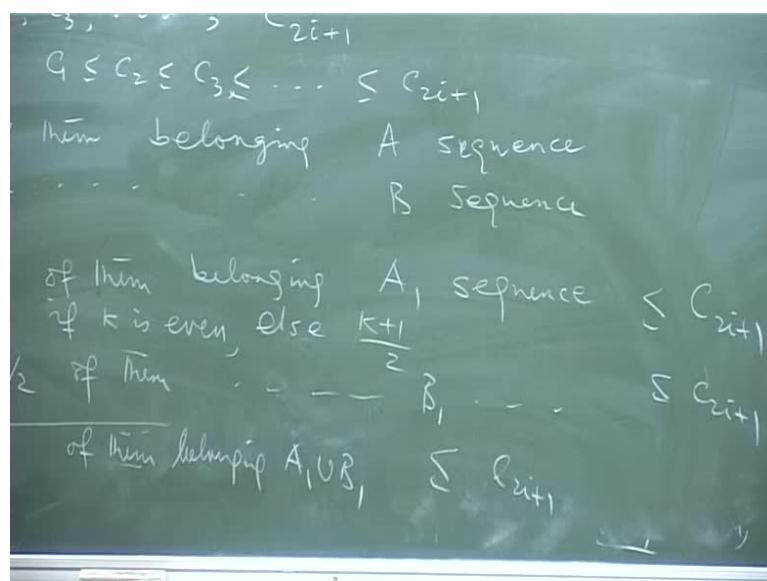 , C₃, . . . . , C₂ᵢ₊₁
C₁ ≤ C₂ ≤ C₃ ≤ . . . . ≤ C₂ᵢ₊₁
them belonging A sequence
. . . . . . B Sequence
of them belonging A₁ sequence ≤ C₂ᵢ₊₁
if k is even, else (k+1)/2
/2 of them . - . — B₁ . - . . ≤ C₂ᵢ₊₁
of them belonging A₁ ∪ B₁ ≤ C₂ᵢ₊₁